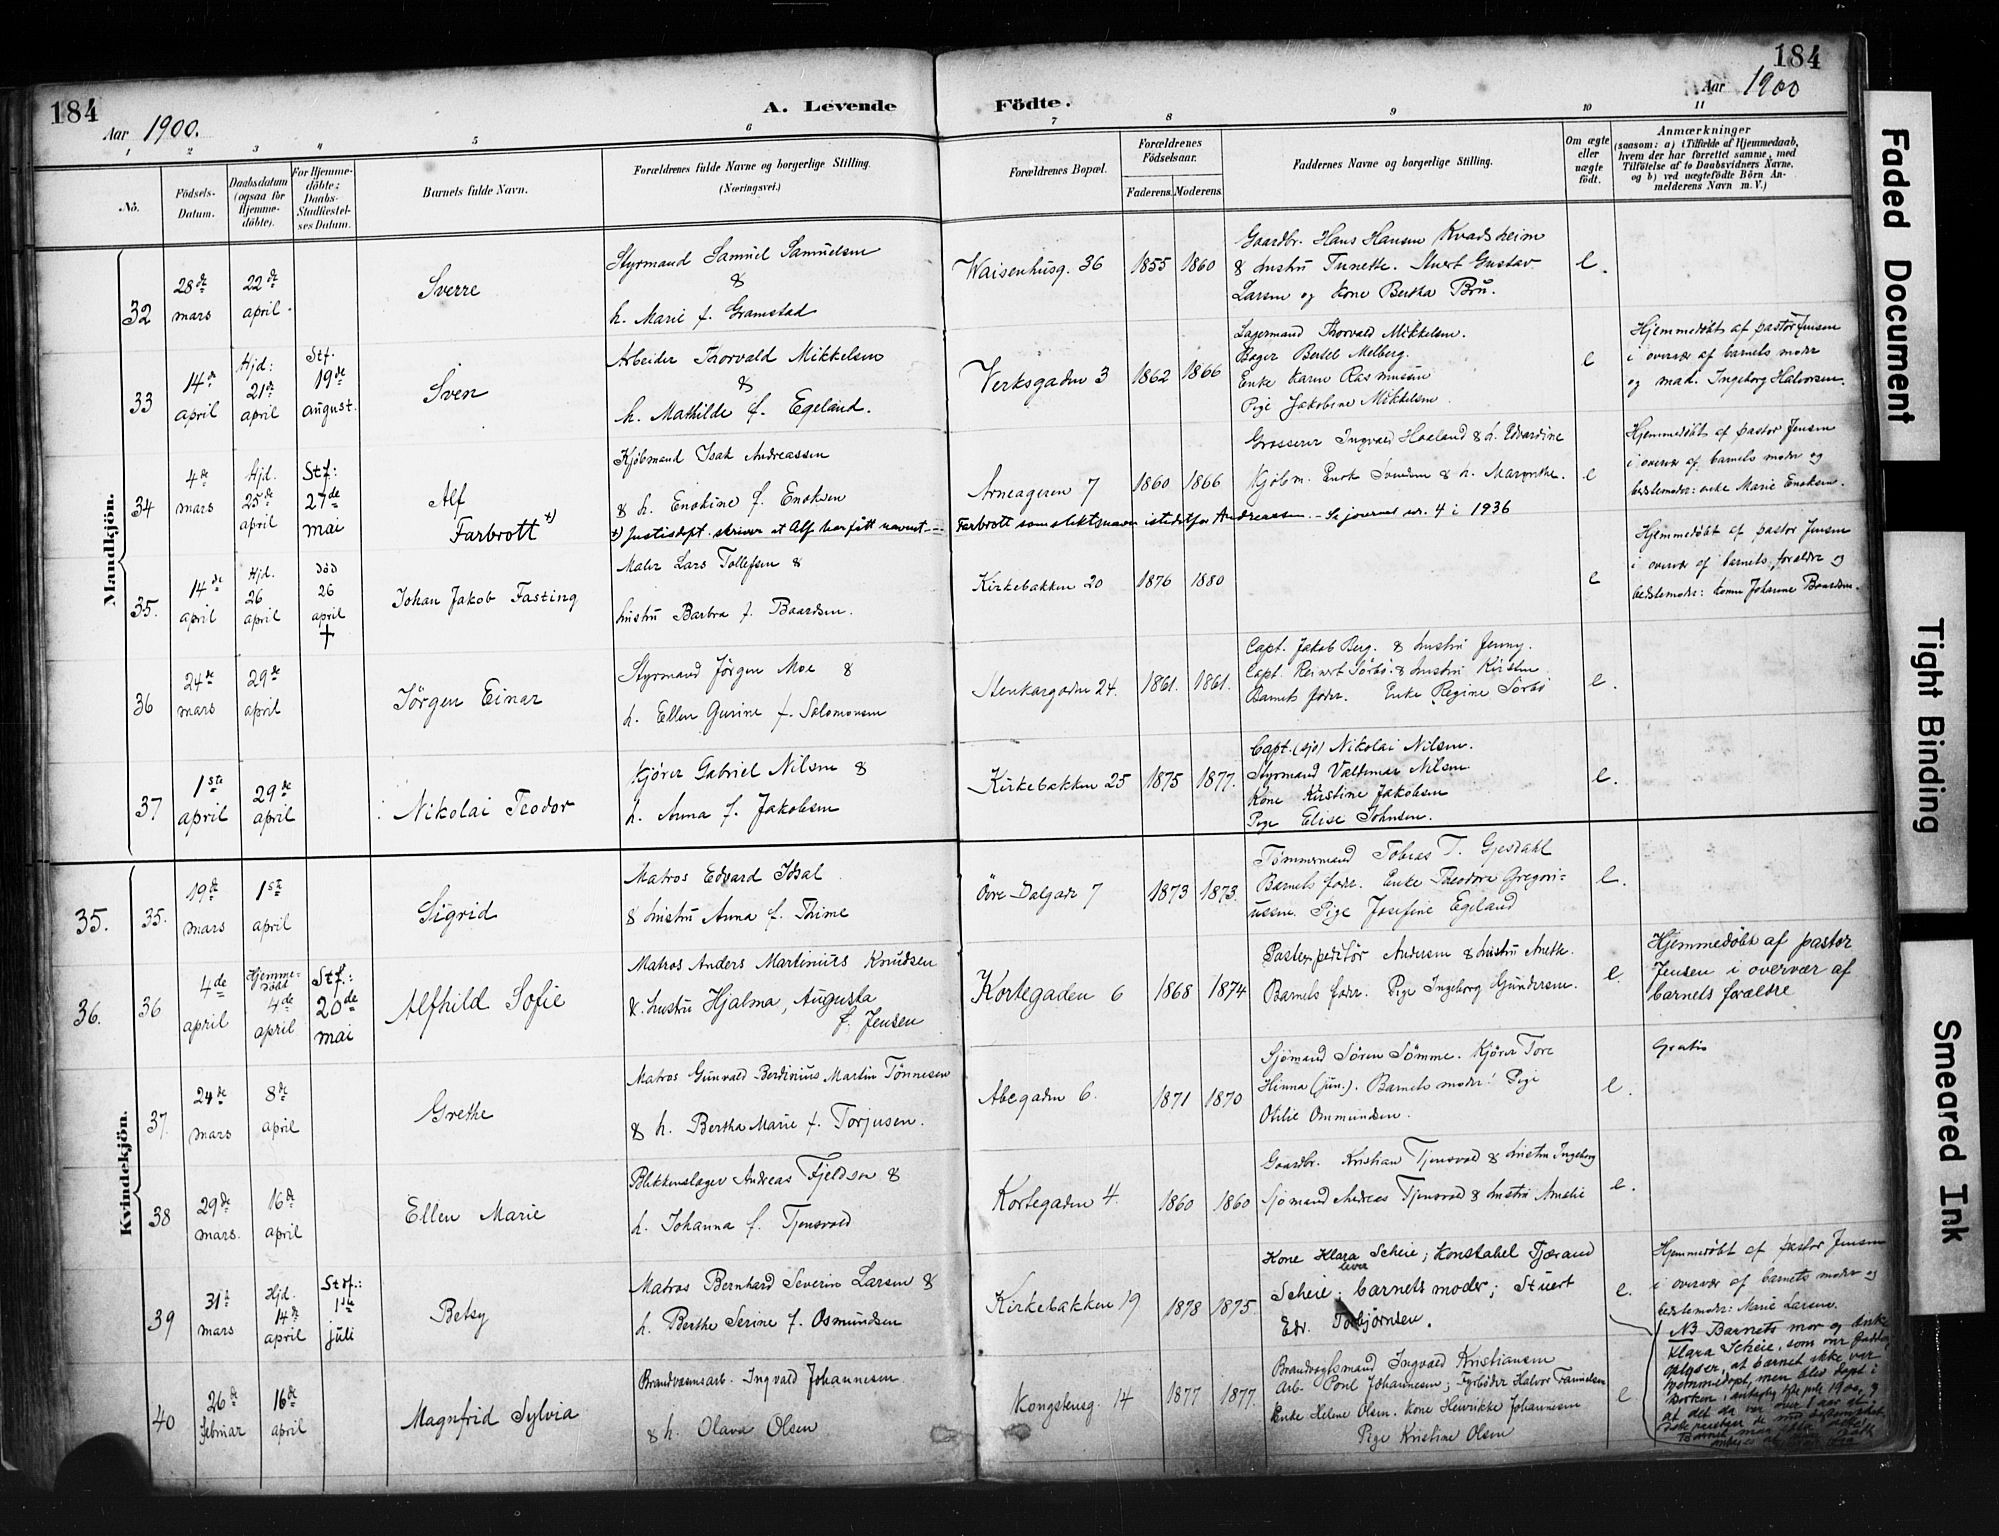 184
184
Aar 1900.
A. Levende Födte.
Aar 1900
1 2 3 4 5 6 7 8 9 10 11
No.
Födsels-Datum.
Daabsdatum (ogsaa för Hjemme-döbte).
For Hjemme-döbte; Daabs-Stadfæstel-ses Datum.
Barnets fulde Navn.
Forældrenes fulde Navne og borgerlige Stilling.
(Næringsvei.)
Forældrenes Bopæl.
Forældrenes Födselsaar.
Faderens. Moderens.
Faddernes Navne og borgerlige Stilling.
Om ægte eller uægte födt.
Anmærkninger
(saasom: a) i Tilfælde af Hjemmedaab,
hvem der har forrettet samme, med
Tilföielse af to Daabsvidners Navne,
og b) ved uægtefödte Börn An-
melderens Navn m. V.)
Mandkjön.
32
28de mars
22de april.
Sverre
Styrmand Samuel Samuelsen
&
h. Marie f. Gramstad
Waisenhusg. 36
1855 1860
Gaardbr. Hans Hansen Kvadsheim
& hustru Tunette. Stuert Gustav
Larsen og Kone Bertha Bru.
e.
33
14de april
Hjd: 21de april
Stf. 19de august.
Sven
Arbeider Thorvald Mikkelsen
&
h. Mathilde f. Egeland.
Verksgaden 3
1862 1866
Lagermand Thorvald Mikkelsen.
Bager Bertel Melberg.
Enke Karen Rasmussen
Pige Jakobine Mikkelsen.
e
Hjemmedøbt af pastor Jensen
i overvær af barnets moder
og mad. Ingeborg Halvorsen.
34
4de mars
Hjd. 25de april
Stf: 27de mai
Alf
Farbrott +)
Kjøbmand Isak Andreassen
& h. Enokine f. Enoksen
+) Justisdept. skriver at Alf har fått navnet
Farbrott som slektsnavn istedetfor Andreassen. - Se journal nr. 4 i 1936
Arneageren 7
1860 1866
Grosserer Ingvald Haaland & h. Edvardine
Kjøbm. Enok Svendsen & h. Marzelie.
e
Hjemmedøbt af pastor Jensen
i overvær af barnets moder og
bedstemoder: enke Marie Enoksen.
35.
14de april
Hjd. 26 april
død 26 april
+
Johan Jakob Fasting
Maler Lars Tollefsen &
hustru Barbra f. Baardsen.
Kirkebakken 20
1876 1880
e
Hjemmedøbt af pastor Jensen
i overvær af barnets forældre og
bedstemoder: konen Johanne Baardsen.
36
24de mars
29de april
Jørgen Einar
Styrmand Jørgen Moe &
h. Ellen Gurine f. Salomonsen
Stenkargaden 24.
1861. 1861.
Capt. Jakob Berg. & hustru Jenny.
Capt. Reinert Sørbø & hustru Kirsten
Barnets fader. Enke Regine Sørbø
e.
37
1ste april
29de april
Nikolai Teodor
Kjører Gabriel Nilsen &
h. Anna f. Jakobsen
Kirkebakken 25
1875 1877.
Capt. (sjø) Nikolai Nilsen.
Styrmand Valdemar Nilsen
Kone Kirstine Jakobsen
Pige Elise Johnsen.
e.
Kvindekjön.
35. 35.
19de mars
1ste april
Sigrid
Matros Edvard Idsal
& hustru Anna f. Thime
Övre Dalgade 7
1873 1873.
Tømmermand Tobias T. Gjesdahl
Barnets fader. Enke Theodora Gregori-
ussen. Pige Josefine Egeland
e.
36. 36
4de april
Hjemme-døbt 4de april
Stf.: 20de mai
Alfhild Sofie
Matros Anders Martinius Knudsen
& hustru Hjalma, Augusta
f. Jensen
Kortegaden 6
1868 1874
Postexpeditør Andersen & hustru Anette.
Barnets fader. Pige Ingeborg Gundersen.
e.
Hjemmedøbt af pastor
Jensen i overvær af
barnets forældre
37.
24de mars
8de april
Grethe
Matros Gunvald Berdinius Martin Tönnesen
& h. Bertha Marie f. Torjusen.
Abegaden 6.
1871 1870
Sjømand Søren Sømme. Kjører Tore
Hinna (jun.). Barnets moder. Pige
Otilie Ommundsen.
e.
Gratis
38
29de mars.
16de april
Ellen Marie
Blikkenslager Andreas Fjeldson &
h. Johanna f. Tjensvold
Kortegaden 4
1860 1860
Gaardbr. Kristian Tjensvold & hustru Ingeborg
Sjømand Andreas Tjensvold & hustru Amalie
e.
39
31te mars
Hjd. 14de april
Stdf.: 1ste juli
Betsy
Matros Bernhard Severin Larsen &
h. Berthe Serine f. Osmundsen
Kirkebakken 19
1878 1875.
Kone Klara Scheie; Konstabel Tjærand
Scheie; barnets moder; Stuert
Edv. Torbjørnsen.
e.
Hjemmedøbt af pastor Jensen
i overvær af barnets moder og
bedstemoder: Marie Larsen.
NB Barnets mor og enke
Klara Scheie, som var fadder,
opgiver, at barnet ikke var
hjemmedøpt, men blev døpt i
kirken, 1ste juli 1900, og
at det da var over 1 aar
40
26de Februar
16de april
Magnfrid Sylvia
Brandvæsensarb. Ingvald Johannesen
& h. Olava Olsen
Kongstensg. 14
1877 1877.
Brandvagtsmand Ingvald Kristiansen
Arb. Poul Johannesen; Fyrbøder Halvor Danielsen
Enke Helene Olsen. Kone Henrikke Johannesen
Pige Kristine Olsen
e.
Faded Document
Tight Binding
Smeared Ink